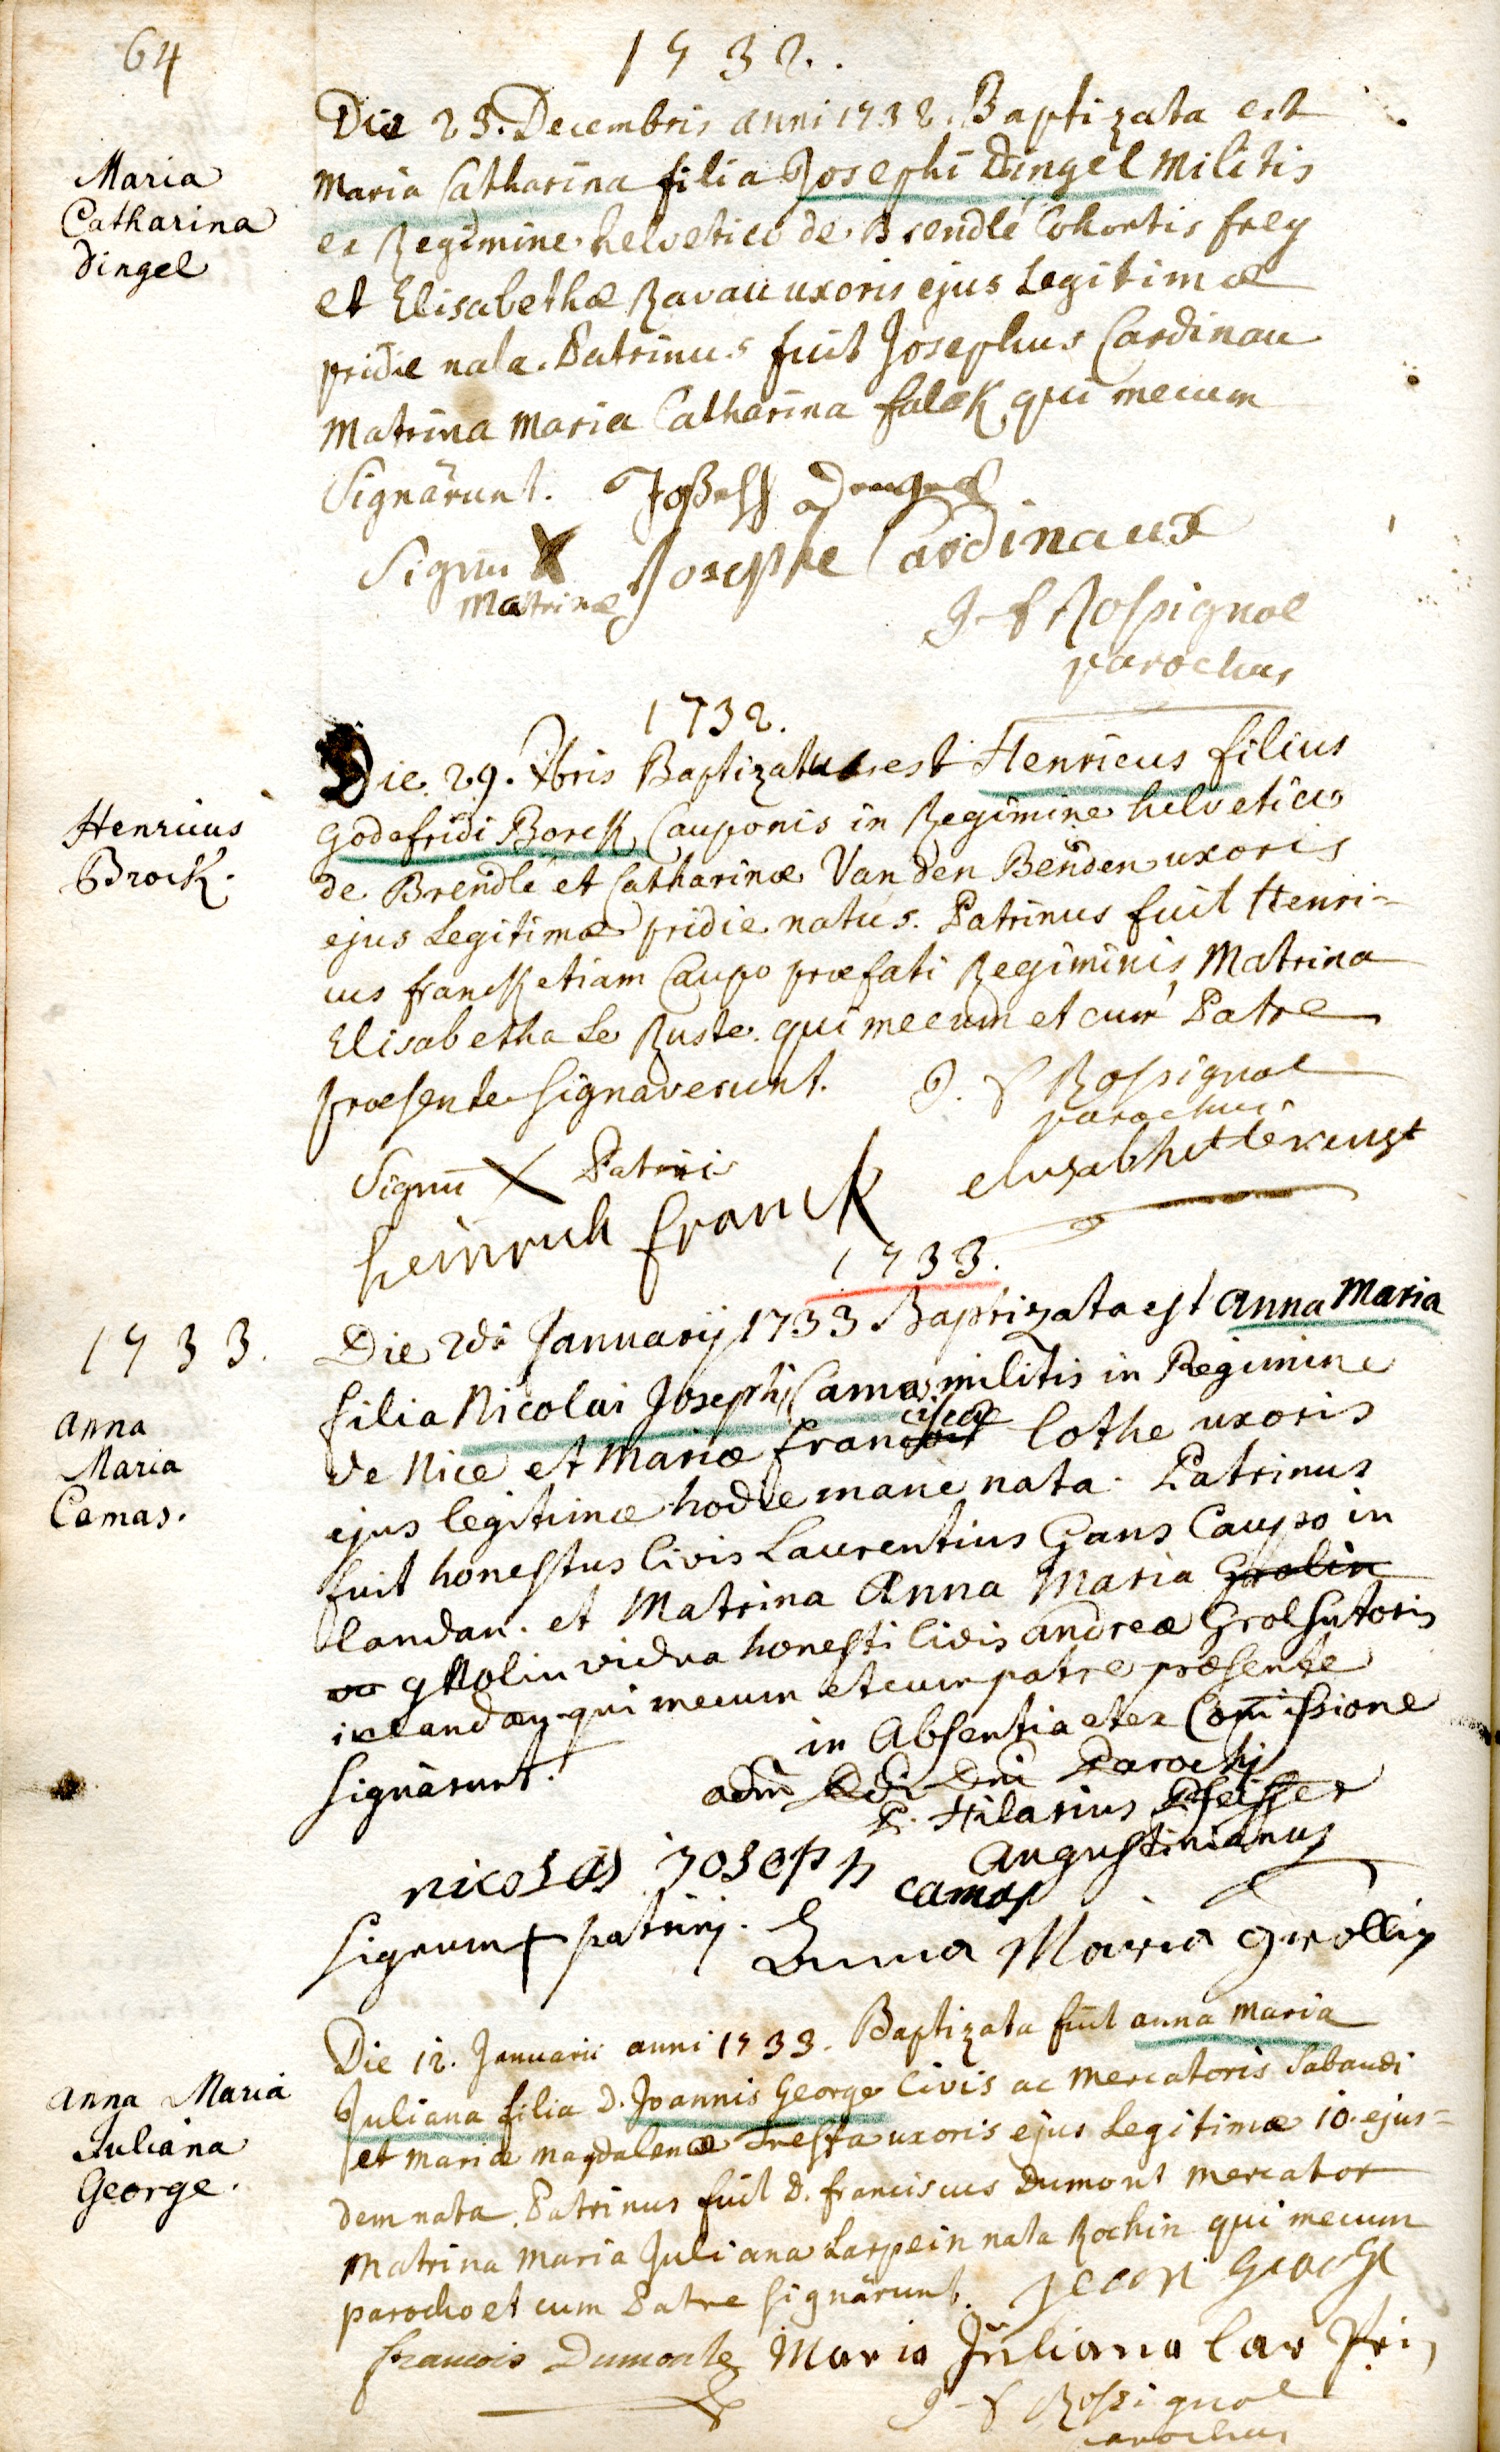 64
1732.
Die 23. Decembris anni 1732. Baptizata est
Maria Catharina filia Josephi Dingel Militis
ex Regimine helvetico de Brendlé Cohortis frey
et Elisabethæ Ravau uxoris ejus Legitimæ
pridie nata. Patrinus fuit Josephus Cardinau
Matrina Maria Catharina falck qui mecum
Signârunt.
Maria
Catharina
Dingel
Signū X Josephe Cardinaux
Matrinæ
J-f Rossignol
parochus
1732.
Die 29. Xbris Baptizatus est Henricus filius
Godefridi Borck Cauponis in Regimine helvetico
de Brendlé et Catharinæ Van den Benden uxoris
ejus Legitimæ pridie natus. Patrinus fuit Henri-
cus franck etiam Caupo præfati Regiminis, Matrina
Elisabetha Le Ruste qui mecum et cum Patre
præsente signaverunt.
Henricus
Brock.
J. f Rossignol
parochus
Signū X Patris
heinrich franck
1733.
1733.
Die 2da Januarij 1733 Baptizata est Anna Maria
filia Nicolai Josephi Camas militis in Regimine
de Nice et Mariæ franciscæ lothe uxoris
ejus legitimæ hodie mane nata. Patrinus
fuit honestus Civis Laurentius Gans Caupo in
landau. et Matrina Anna Maria Grolin
grolin vidua honesti Civis andreæ Grol sutoris
in landau qui mecum et cum patre præsente
signârunt.
Anna
Maria
Camas.
in Absentia et ex Com̄issione
adm̄ Rdi Dni Parochi
P. Hilarius Pfeiffer
Augustinianus
nicolas joseph
camas
signum + patrini.
Anna Maria grollin
Die 12. Januarii anni 1733. Baptizata fuit anna Maria
Juliana filia D. Joannis George Civis ac Mercatoris Sabaudi
et Mariæ Magdalenæ Tresta uxoris ejus Legitimæ 10. ejus=
dem nata. Patrinus fuit D. franciscus Dumont Mercator
Matrina Maria Juliana Larpein nata Rochin qui mecum
parocho et cum Patre signârunt.
Anna Maria
Juliana
George.
francois Dumonte
Maria Juliana
J-f Rossignol
parochus